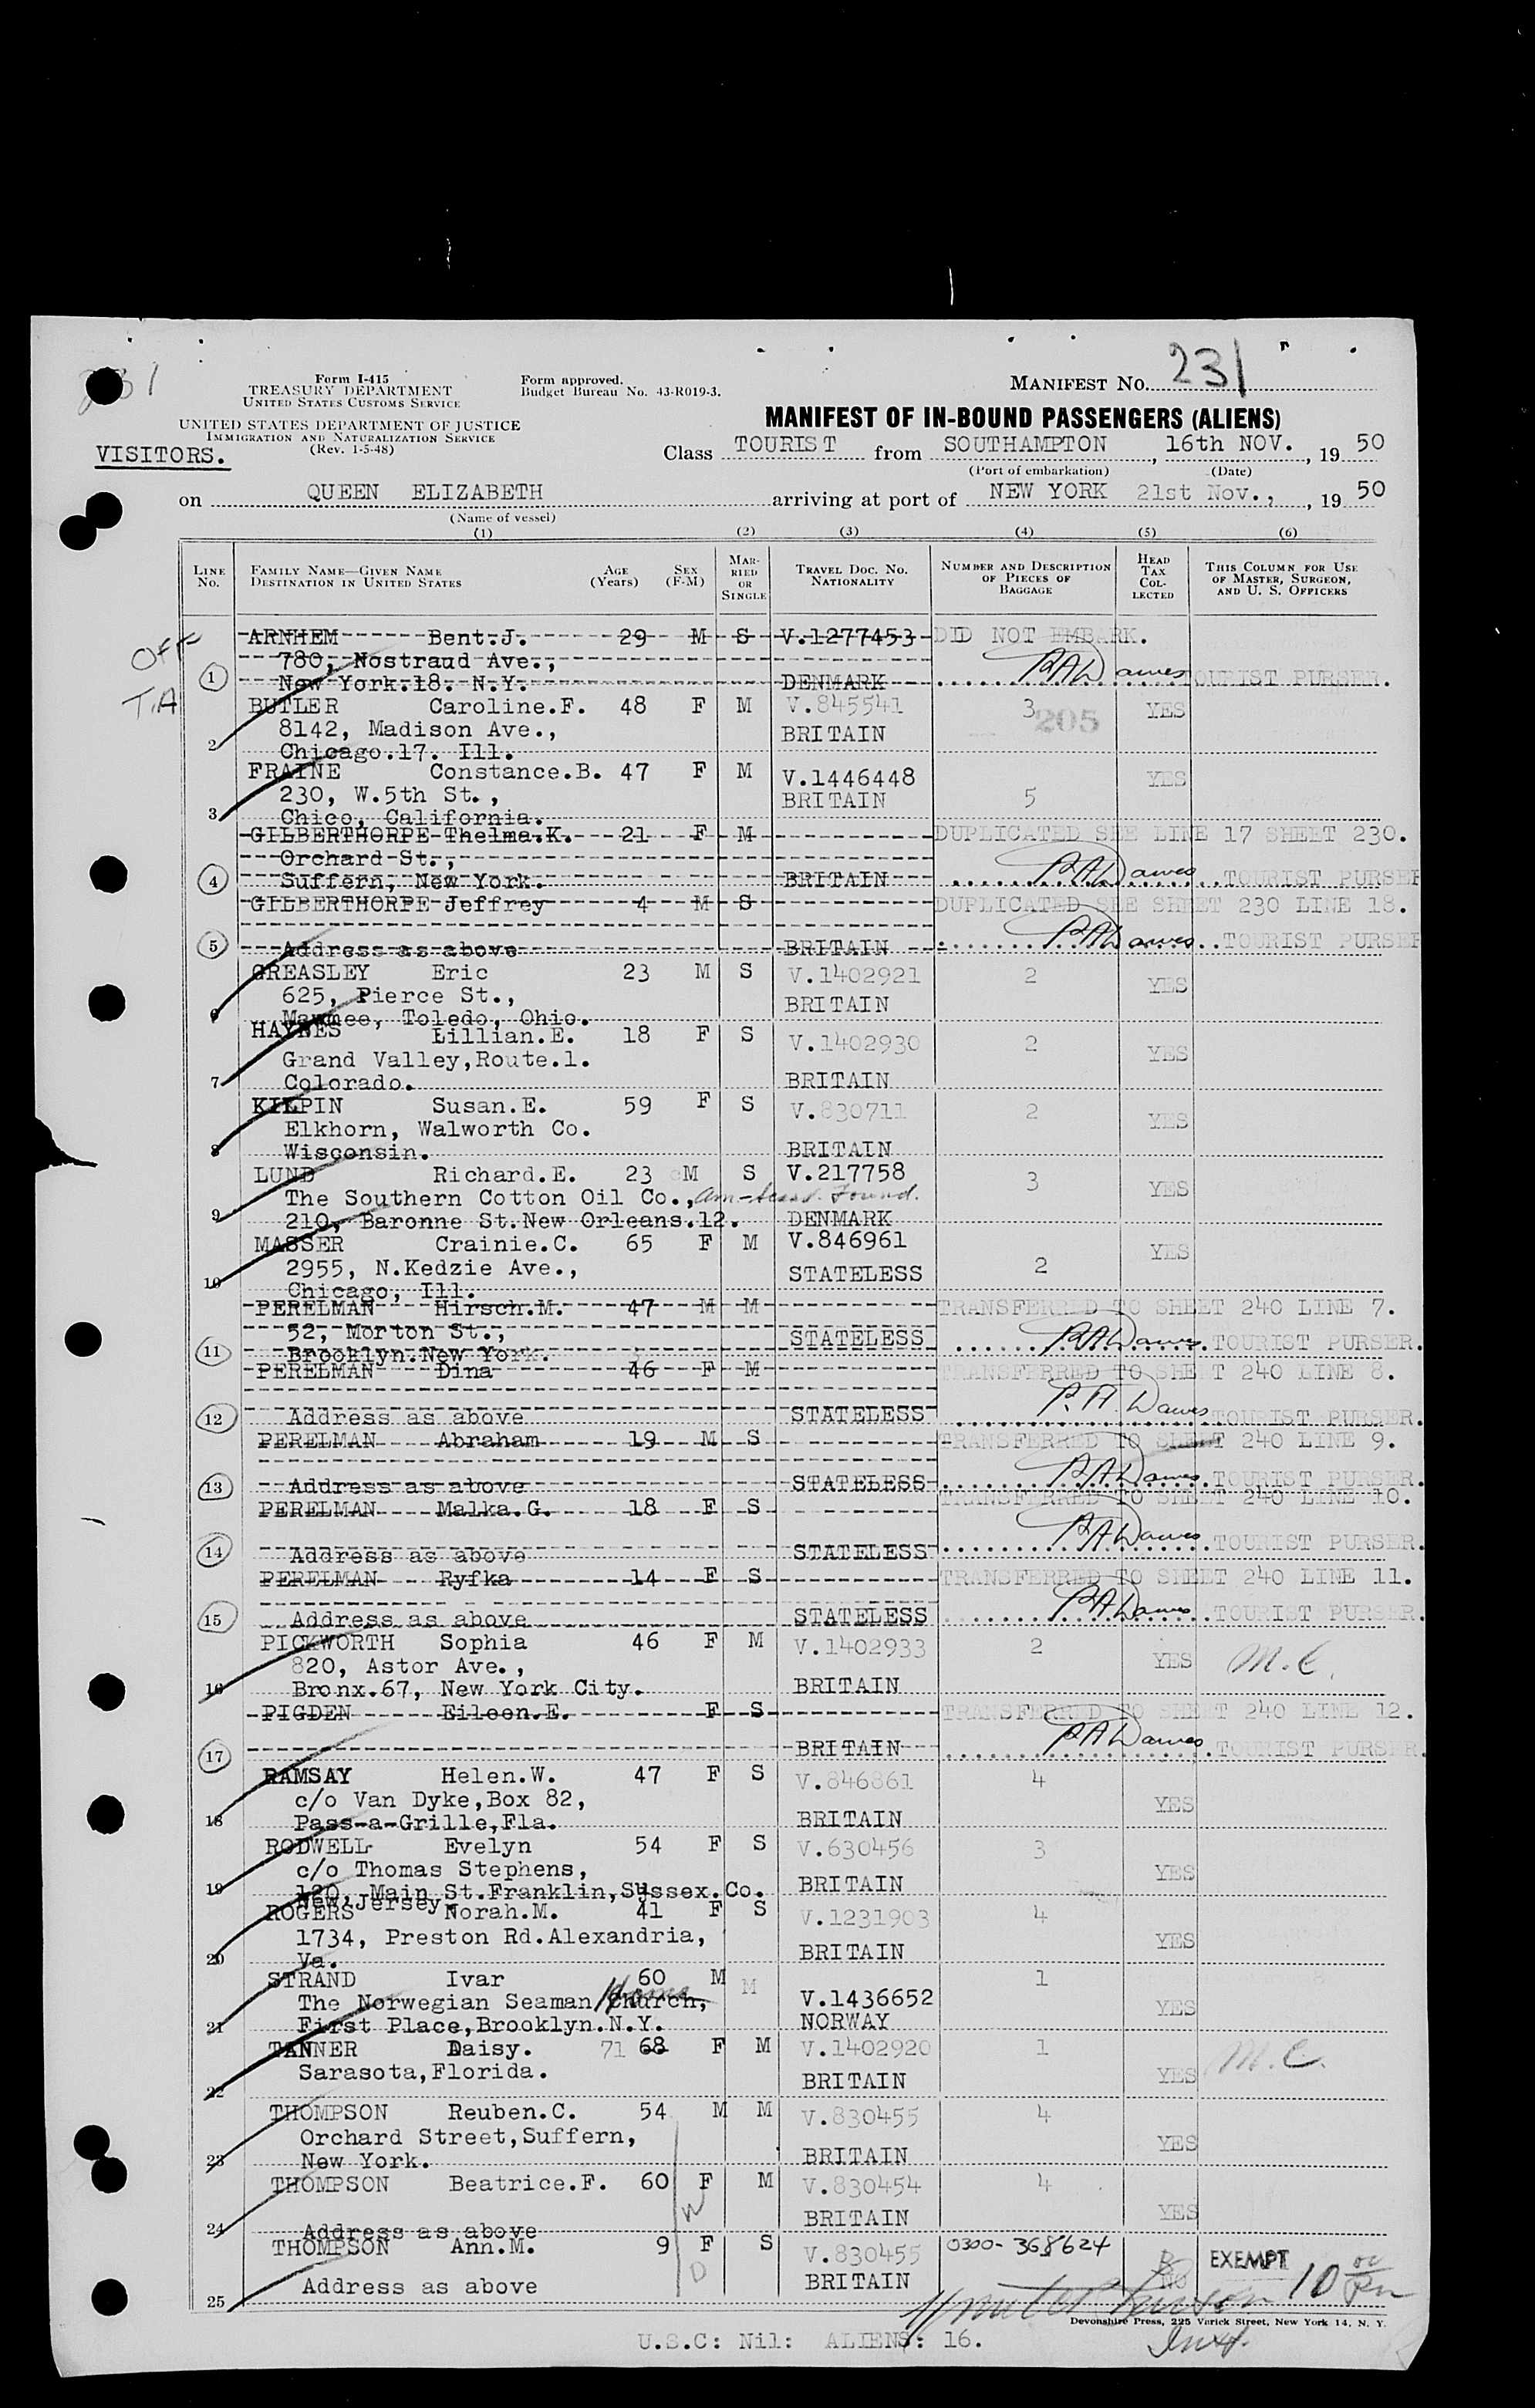 231
Form I-415
TREASURY DEPARTMENT
UNITED STATES CUSTOMS SERVICE
Form approved.
Budget Bureau No. 43-R019-3.
MANIFEST No. 231
UNITED STATES DEPARTMENT OF JUSTICE
IMMIGRATION AND NATURALIZATION SERVICE
(Rev. 1-5-48)
VISITORS.
MANIFEST OF IN-BOUND PASSENGERS (ALIENS)
Class TOURIST from SOUTHAMPTON, 16th NOV., 1950
(Port of embarkation) (Date)
on QUEEN ELIZABETH arriving at port of NEW YORK 21st Nov., , 1950
(Name of vessel)
(1) (2) (3) (4) (5) (6)
LINE No. FAMILY NAME—GIVEN NAME DESTINATION IN UNITED STATES AGE (Years) SEX (F-M) MARRIED OR SINGLE TRAVEL DOC. NO. NATIONALITY NUMBER AND DESCRIPTION OF PIECES OF BAGGAGE HEAD TAX COLLECTED THIS COLUMN FOR USE OF MASTER, SURGEON, AND U. S. OFFICERS
OFF
T.A
ARNHEM Bent.J. 29 M S V.1277453 DID NOT EMBARK.
780, Nostraud Ave., RADawes
1 New York.18. N.Y. DENMARK TOURIST PURSER.
BUTLER Caroline.F. 48 F M V.845541 3 YES
8142, Madison Ave., BRITAIN 205
2 Chicago.17. Ill.
FRAINE Constance.B. 47 F M V.1446448 YES
230, W.5th St., BRITAIN 5
3 Chico, California.
GILBERTHORPE Thelma.K. 21 F M DUPLICATED SEE LINE 17 SHEET 230.
Orchard St.,
4 Suffern, New York. BRITAIN RADawes TOURIST PURSER
GILBERTHORPE Jeffrey 4 M S DUPLICATED SEE SHEET 230 LINE 18.
5 Address as above BRITAIN RADawes TOURIST PURSER
GREASLEY Eric 23 M S V.1402921 2 YES
625, Pierce St., BRITAIN
6 Mawmee, Toledo, Ohio.
HAYNES Lillian.E. 18 F S V.1402930 2 YES
Grand Valley,Route.1.
7 Colorado. BRITAIN
KILPIN Susan.E. 59 F S V.830711 2 YES
Elkhorn, Walworth Co.
8 Wisconsin. BRITAIN
LUND Richard.E. 23 M S V.217758 3 YES
The Southern Cotton Oil Co., Am-Scand. Found.
9 210, Baronne St.New Orleans.12. DENMARK
MASSER Crainie.C. 65 F M V.846961 YES
2955, N.Kedzie Ave., STATELESS 2
10 Chicago, Ill.
PERELMAN Hirsch.M. 47 M M TRANSFERRED TO SHEET 240 LINE 7.
52, Morton St., STATELESS RADawes TOURIST PURSER.
11 Brooklyn.New York.
PERELMAN Dina 46 F M TRANSFERRED TO SHEET 240 LINE 8.
12 Address as above STATELESS R.A.Dawes TOURIST PURSER.
PERELMAN Abraham 19 M S TRANSFERRED TO SHEET 240 LINE 9.
13 Address as above STATELESS RADawes TOURIST PURSER.
PERELMAN Malka.G. 18 F S TRANSFERRED TO SHEET 240 LINE 10.
14 Address as above STATELESS RADawes TOURIST PURSER.
PERELMAN Ryfka 14 F S TRANSFERRED TO SHEET 240 LINE 11.
15 Address as above STATELESS RADawes TOURIST PURSER.
PICKWORTH Sophia 46 F M V.1402933 2 YES M.C.
820, Astor Ave.,
16 Bronx.67, New York City. BRITAIN
PIGDEN Eileen.E. F S TRANSFERRED TO SHEET 240 LINE 12.
17 BRITAIN RADawes TOURIST PURSER.
RAMSAY Helen.W. 47 F S V.846861 4 YES
c/o Van Dyke,Box 82,
18 Pass-a-Grille,Fla. BRITAIN
RODWELL Evelyn 54 F S V.630456 3 YES
c/o Thomas Stephens,
19 120, Main St.Franklin,Sussex.Co. BRITAIN
New Jersey
ROGERS Norah.M. 41 F S V.1231903 4 YES
1734, Preston Rd.Alexandria,
20 Va. BRITAIN
STRAND Ivar 60 M M 1 YES
The Norwegian Seaman Church, Home V.1436652
21 First Place,Brooklyn.N.Y. NORWAY
TANNER Daisy. 71 68 F M V.1402920 1 YES M.C.
Sarasota,Florida. BRITAIN
22
THOMPSON Reuben.C. 54 M M V.830455 4 YES
Orchard Street,Suffern,
23 New York. BRITAIN
THOMPSON Beatrice.F. 60 F M V.830454 4 YES
BRITAIN
24 Address as above
THOMPSON Ann.M. 9 F S V.830455 0300-368624 NO EXEMPT
25 Address as above BRITAIN 10
Devonshire Press, 225 Varick Street, New York 14, N. Y.
U.S.C: Nil: ALIENS: 16.